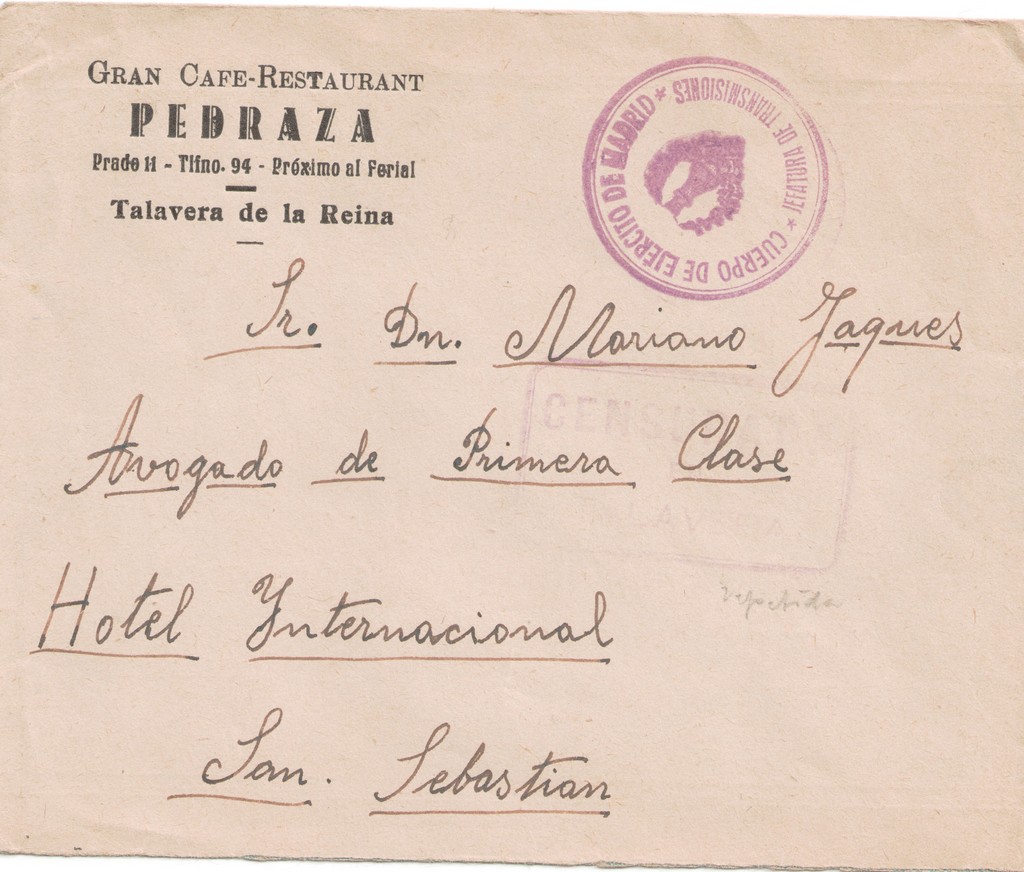 GRAN CAFE-RESTAURANT
PEDRAZA
Prado 11 - Tlfno. 94 - Próximo al Ferial
Talavera de la Reina
CUERPO DE EJÉRCITO DE MADRID * JEFATURA DE TRANSMISIONES *
Sr. Dn. Mariano Jaques
CENSURA
Avogado de Primera Clase
TALAVERA
Hotel Internacional
repetida
San. Sebastian